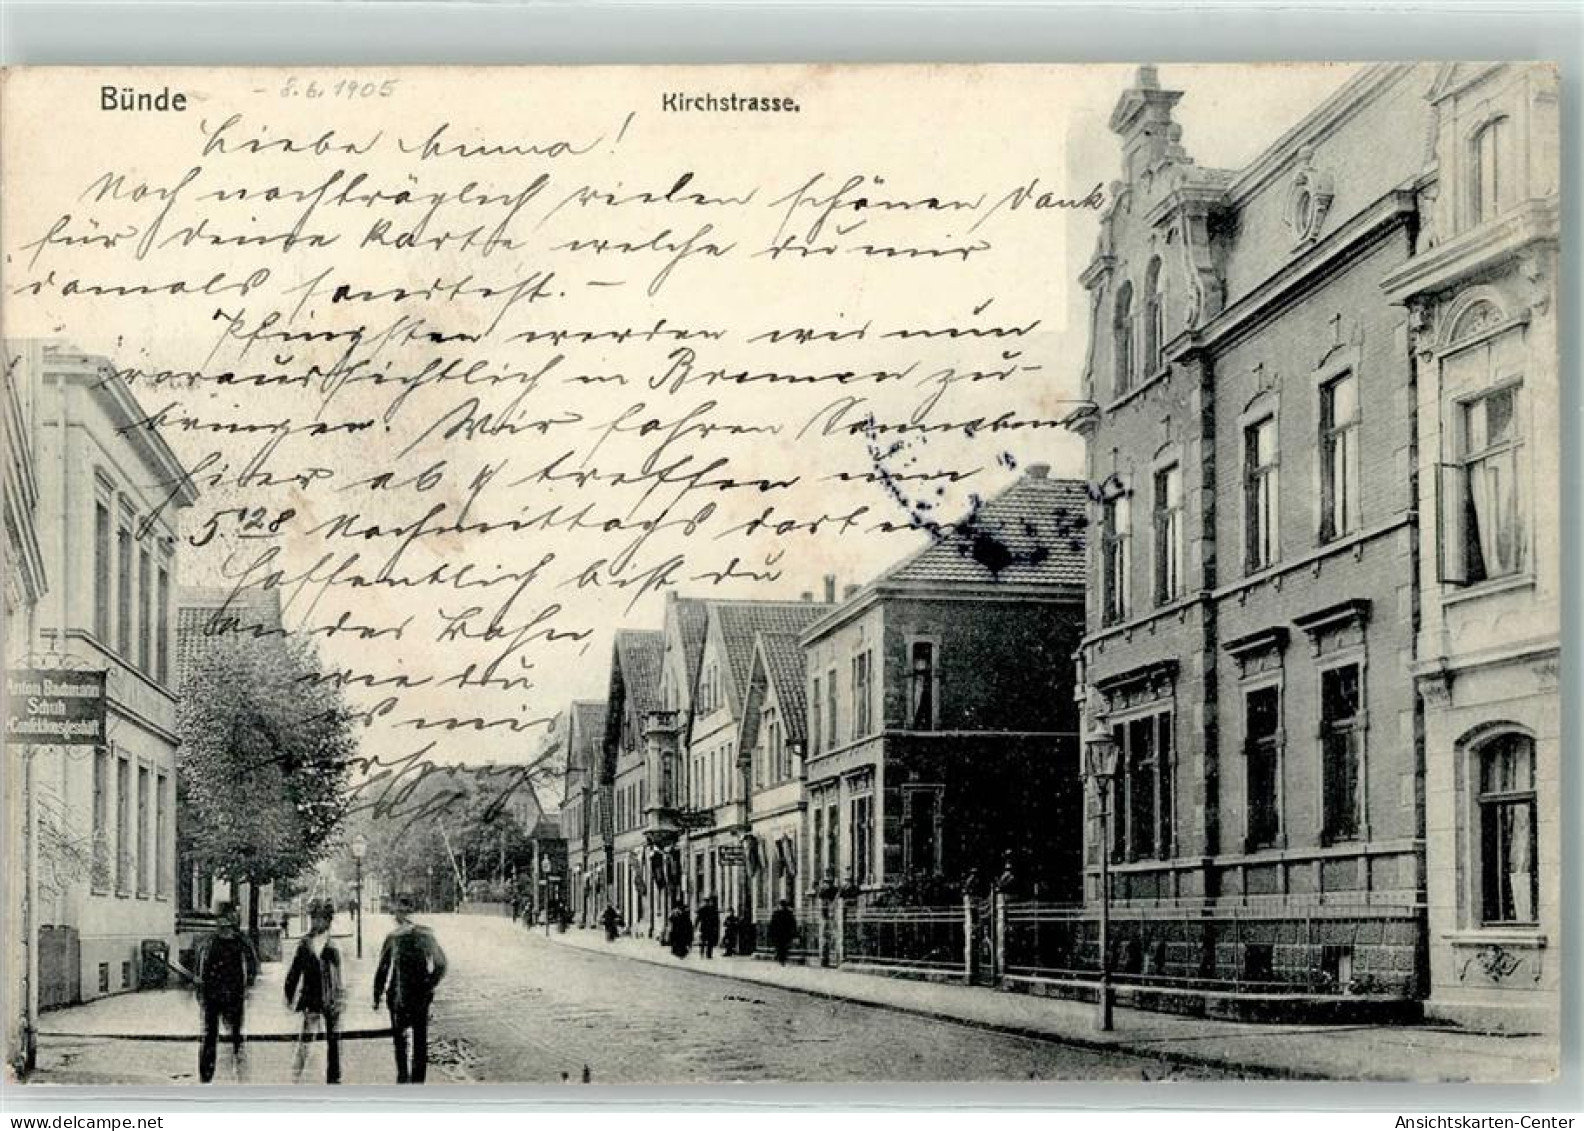 Bünde
- 8.6.1905
Kirchstrasse.
Liebe Anna!
Noch nachträglich vielen schönen Dank
für deine Karte welche du mir
damals sandtest. -
Pfingsten werden wir nun
voraussichtlich in Bremen zu-
bringen. Wir fahren Sonnabend
hier ab & treffen um
5.28 Nachmittags dort ein
Hoffentlich bist du
an der Bahn,
wie du
es mir
versprachst
Anton Bachmann
Schuh
delcampe.net
Ansichtskarten-Center